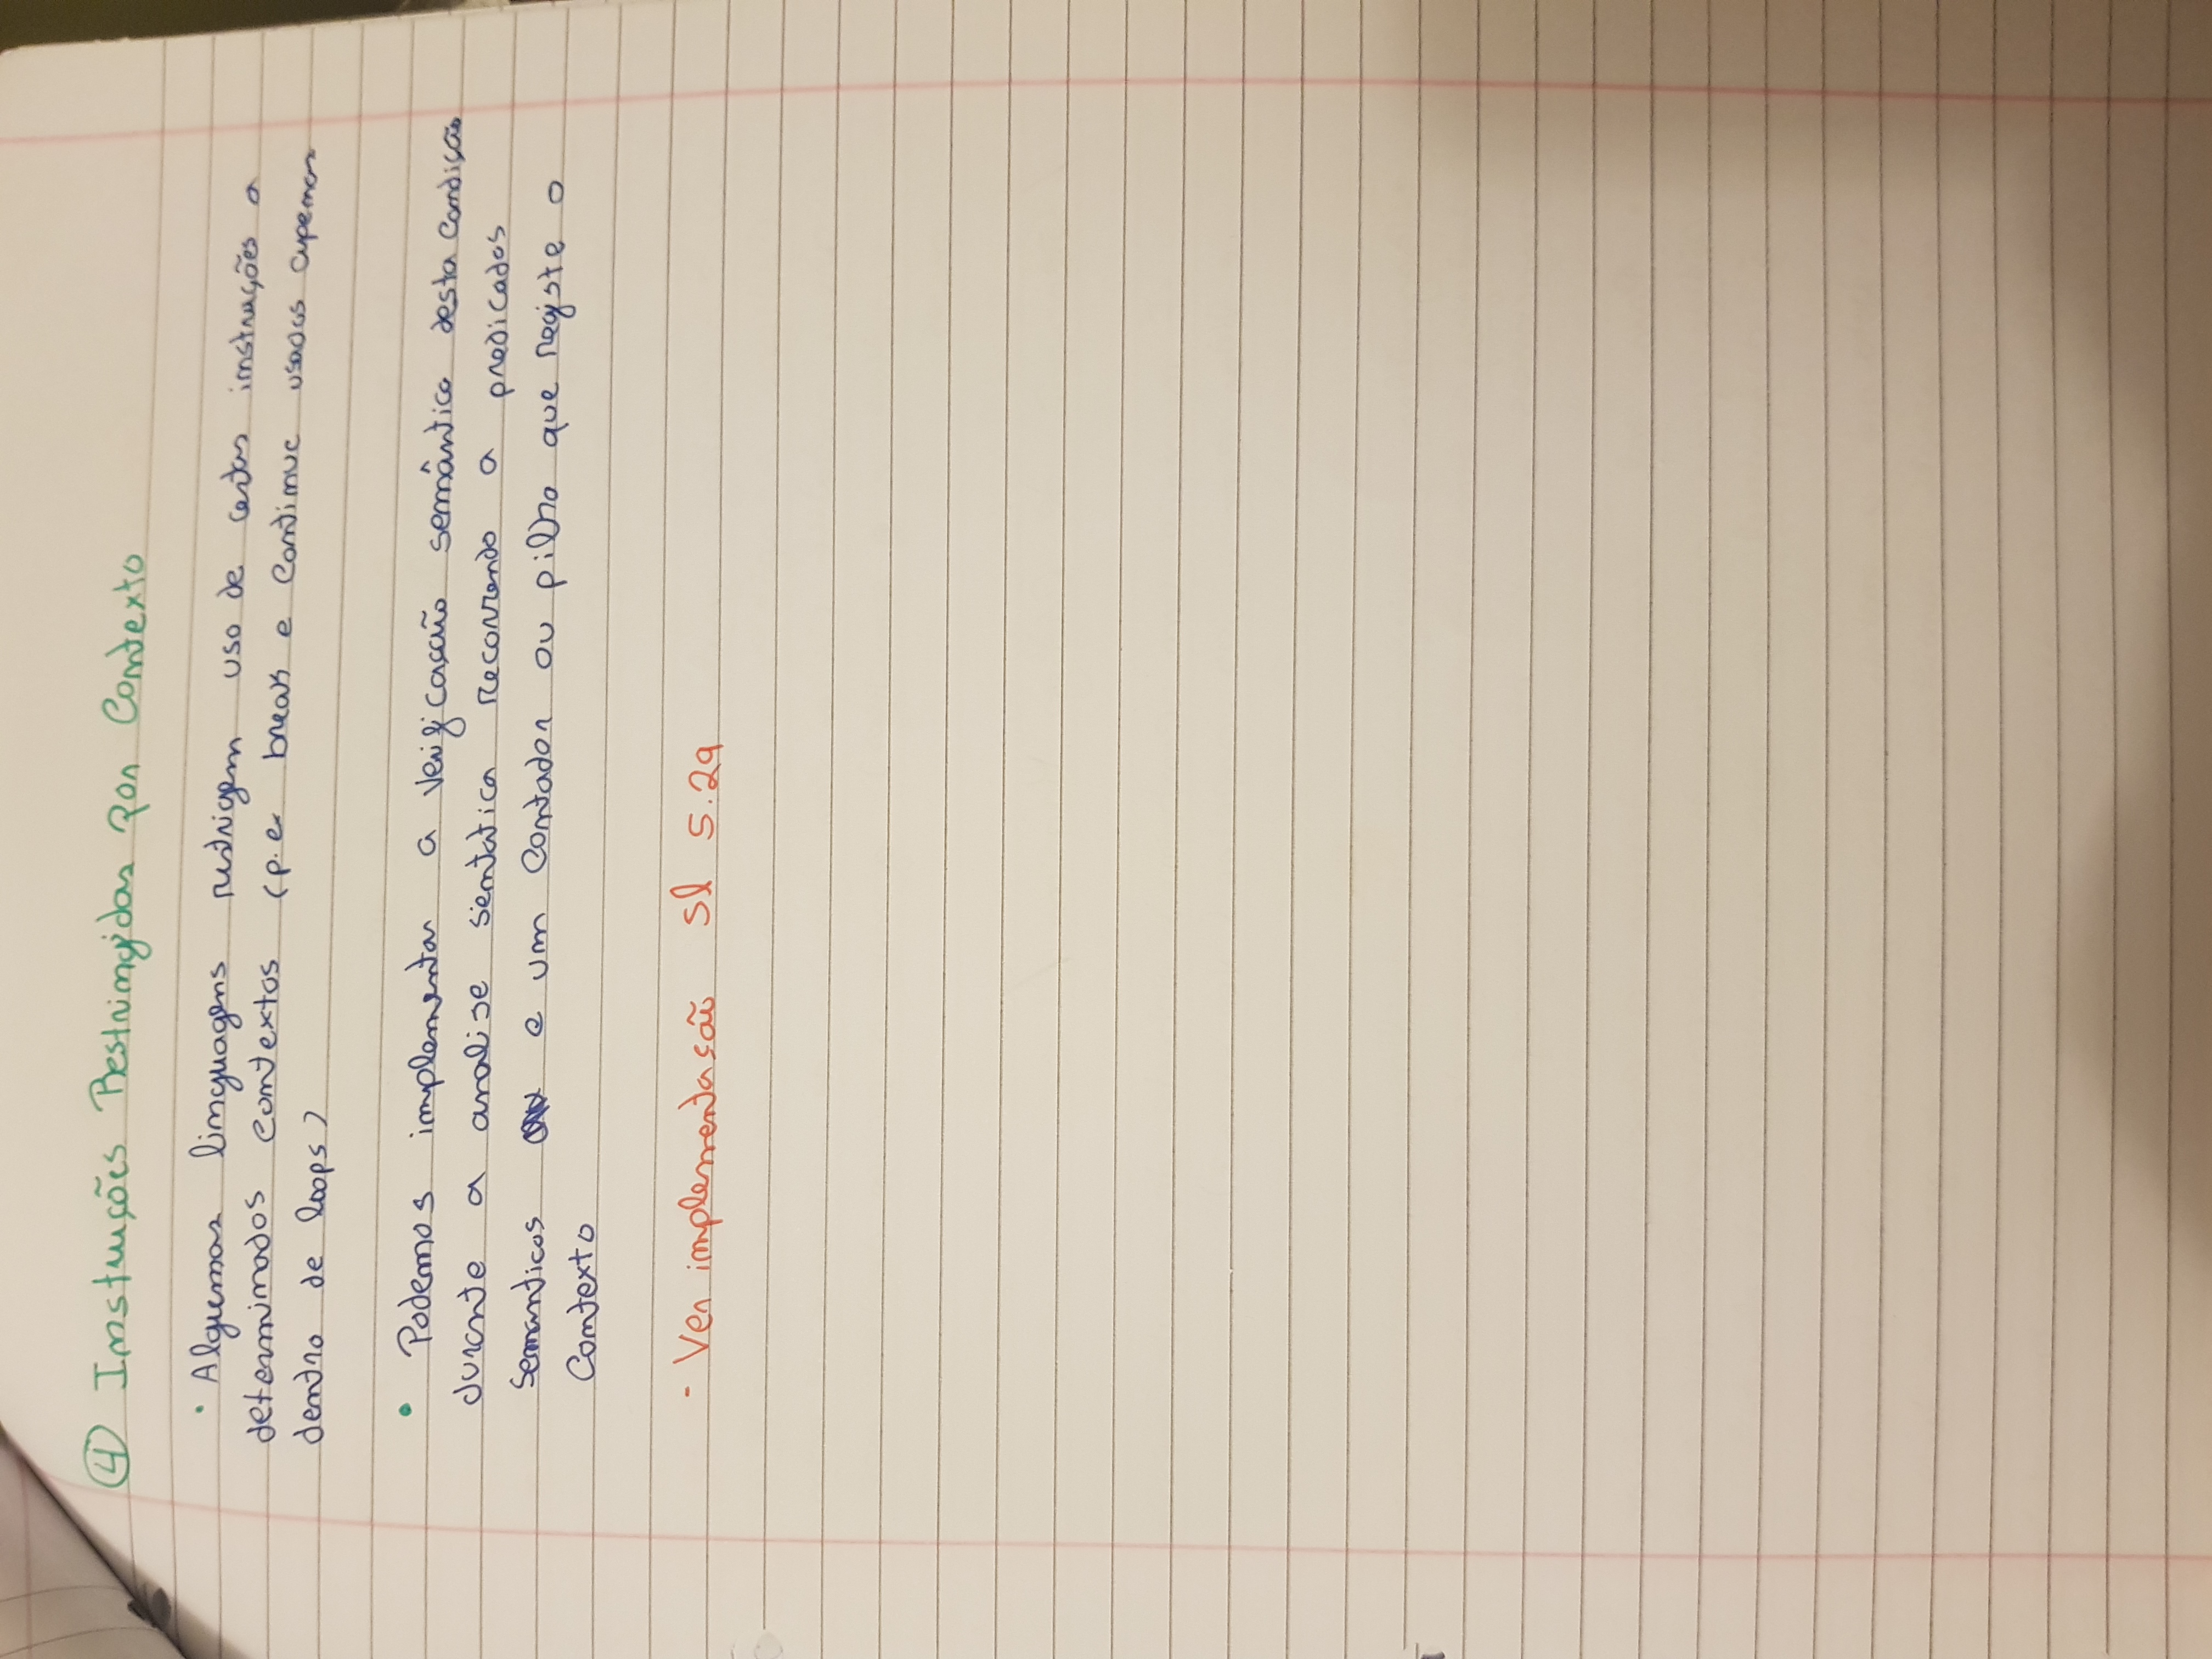 ④ Instruções Restringidas por Contexto
· Algumas linguagens restrigem uso de certas instruções a
determinados contextos (p.ex break e continue usados apenas
dentro de loops)
• Podemos implementar a verificação semântica desta condição
durante a analise sentatica recorrendo a predicados
semanticos e um contador ou pilha que registe o
contexto
- Ver implementasão sl 5.29